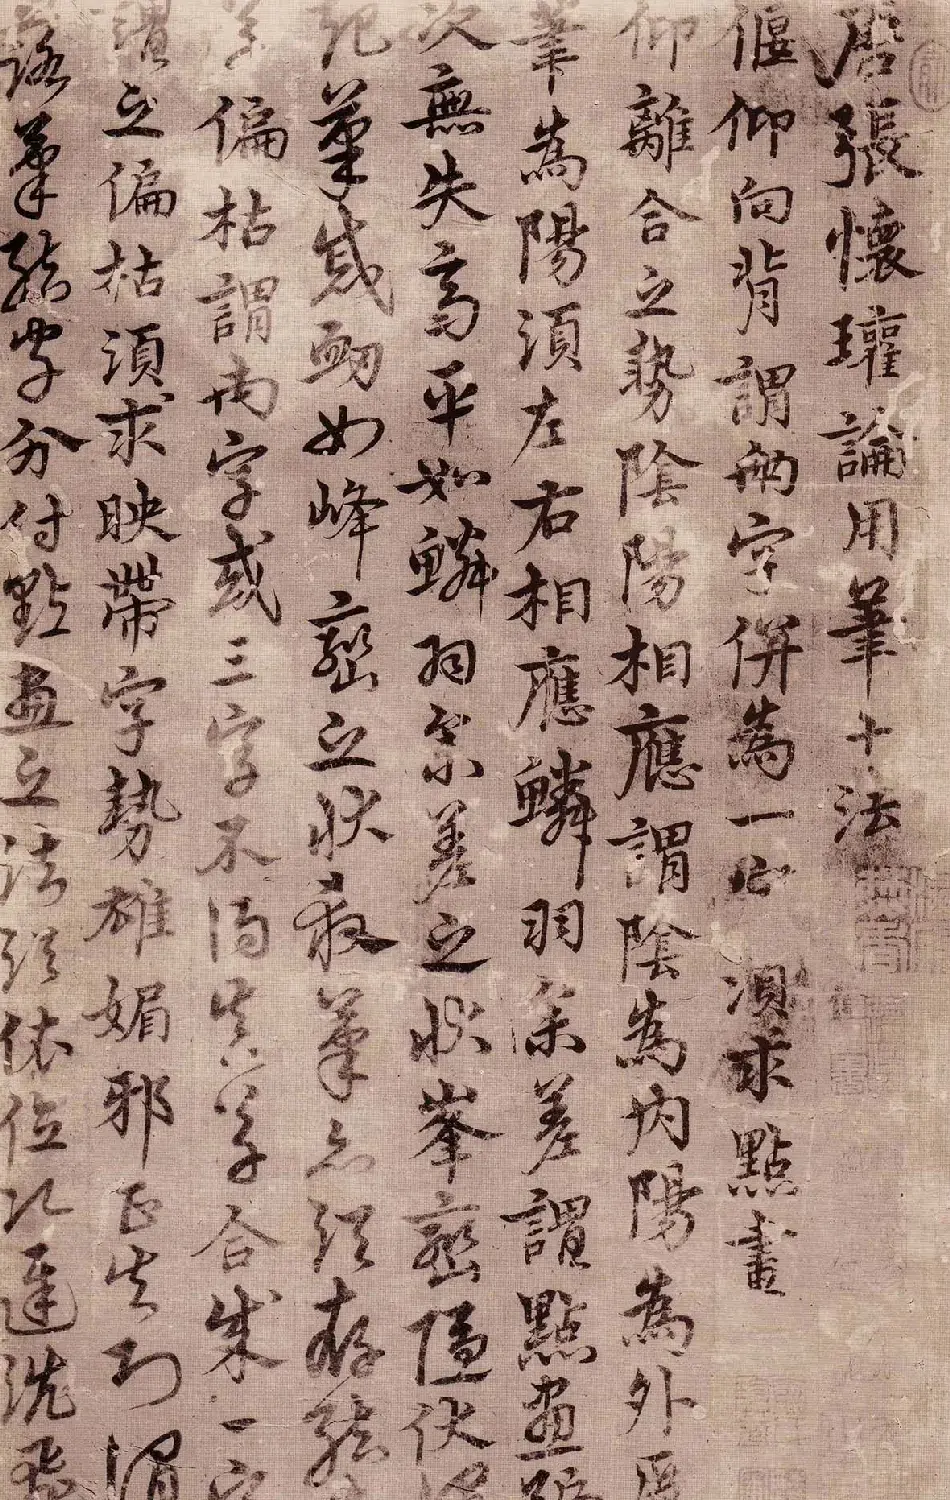 唐張懷瓘論用筆十法
偃仰向背謂兩字併為一 須求點畫
仰離合之勢陰陽相應謂陰為內陽為外
筆為陽須左右相應鱗羽參差謂點畫
次無失高平如鱗羽參差之狀峯巒隱伏
起筆 如峰巒之狀殺筆亦須存結
字偏枯謂兩字或三字不得真草合成一字
謂之偏枯須求映帶字勢雄媚邪正失 謂
落筆結字分付點畫之法須依位次遲